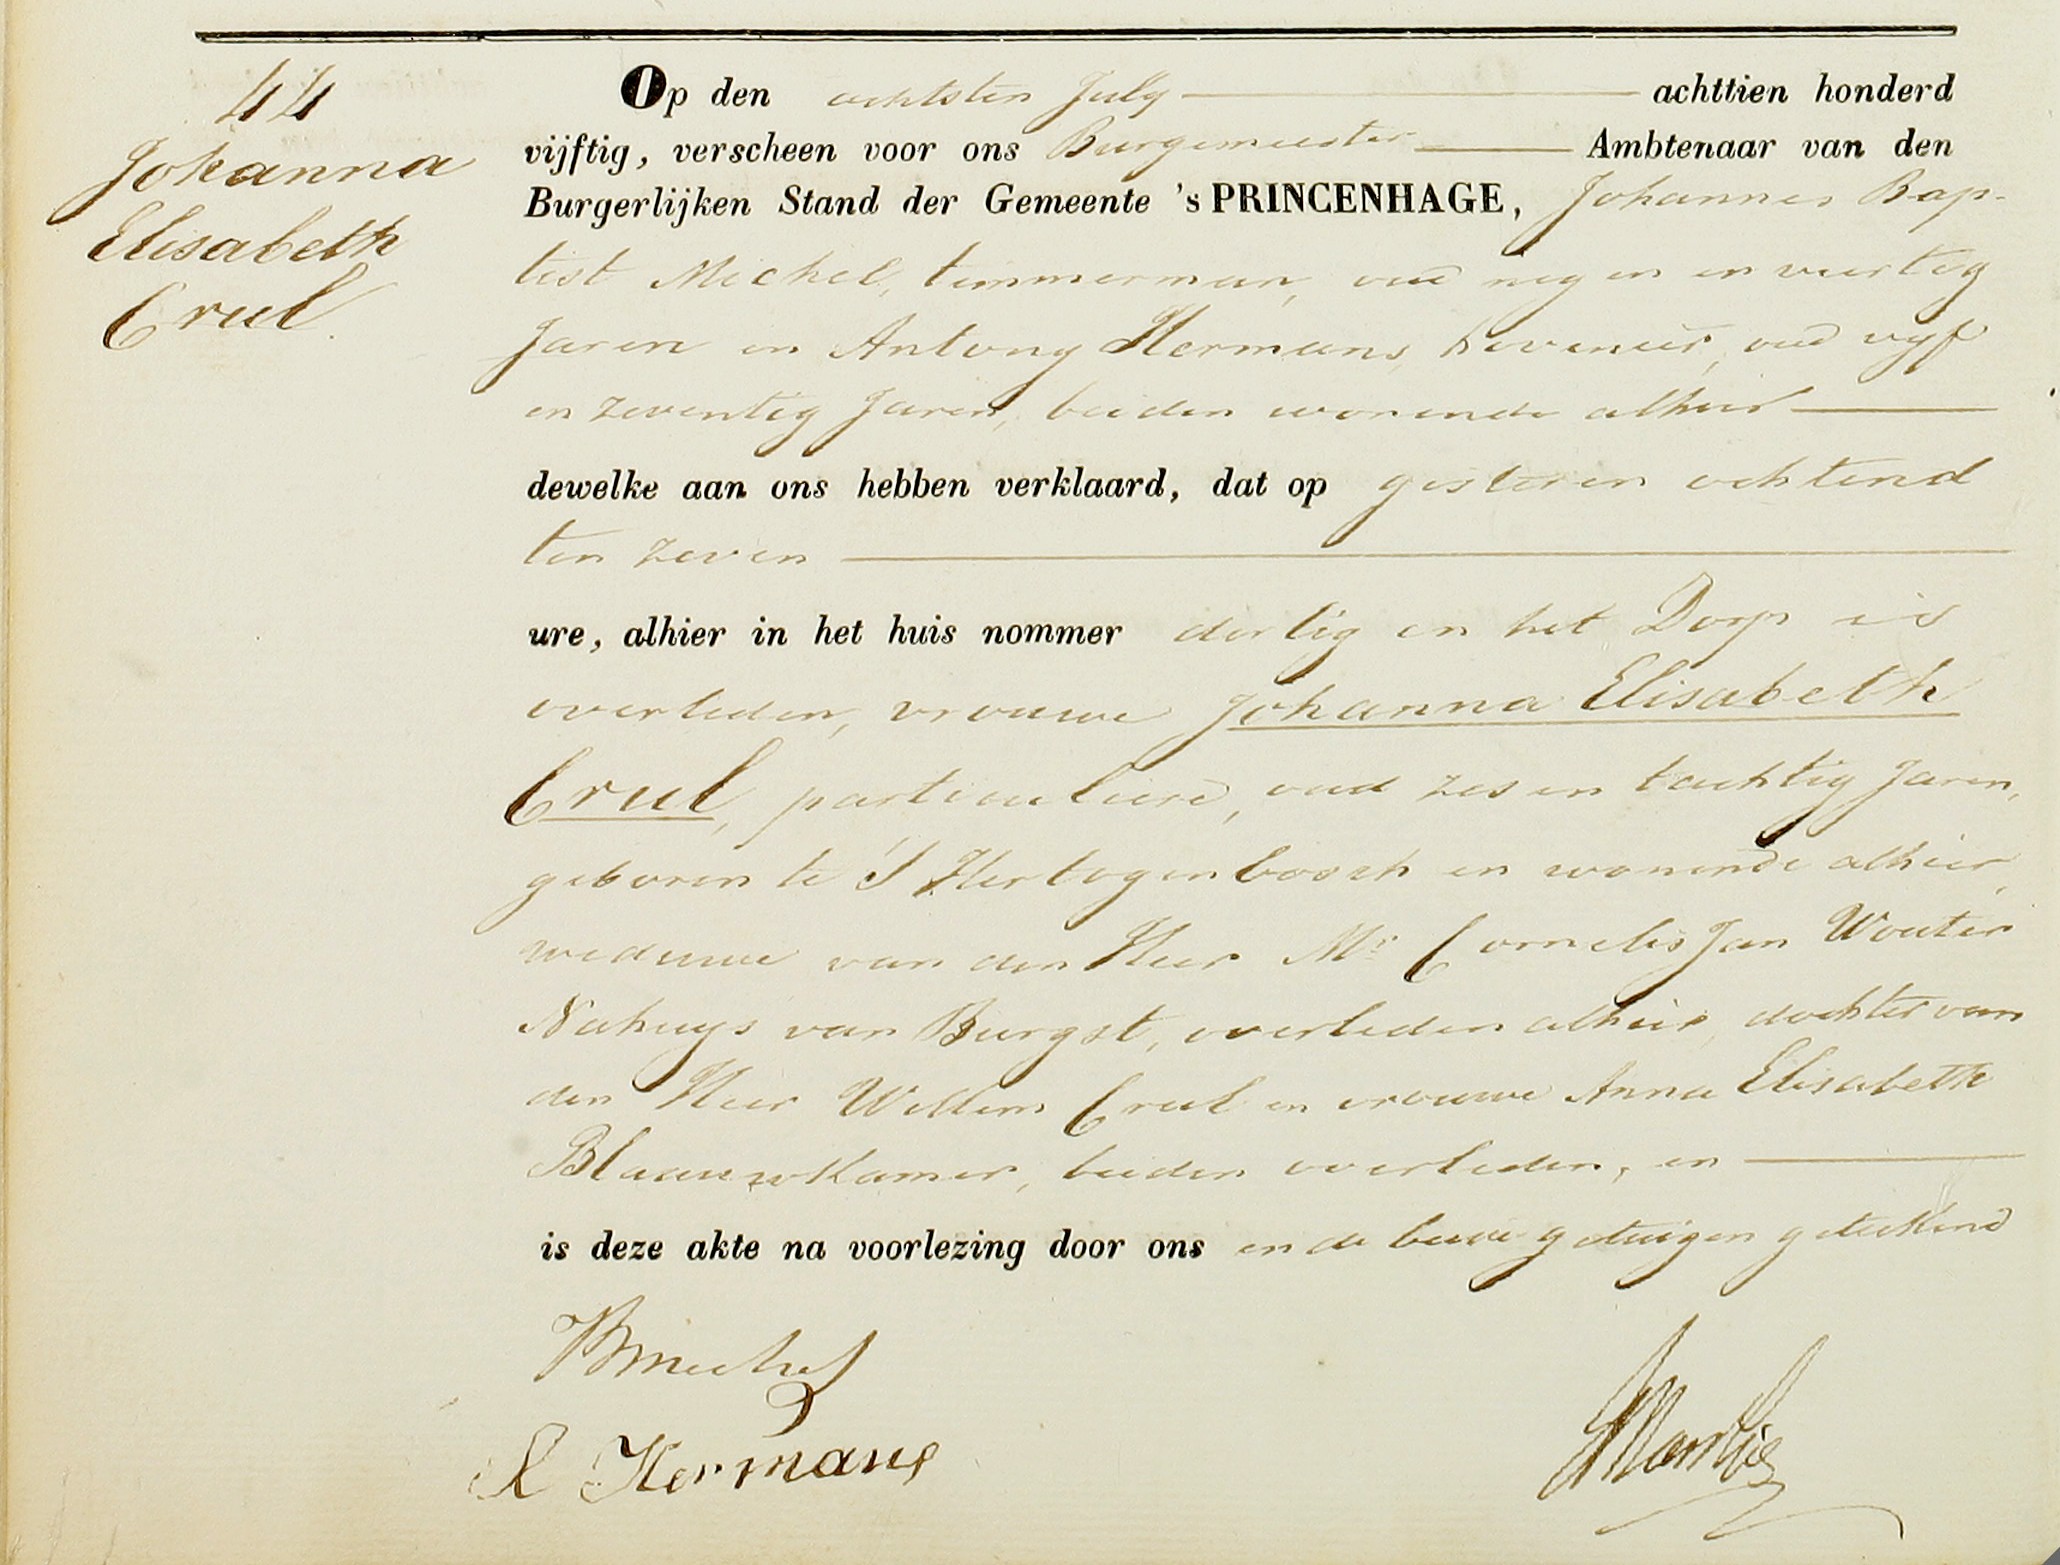 44
Johanna
Elisabeth
Crul.
Op den achtsten July achttien honderd
vijftig, verscheen voor ons Burgemeester Ambtenaar van den
Burgerlijken Stand der Gemeente 's PRINCENHAGE, Johannes Bap-
tist Michel, timmerman, oud negen en veertig
Jaren en Antony Hermans, hovenier, oud vyf
en zeventig Jaren, beiden wonende alhier
dewelke aan ons hebben verklaard, dat op gisteren ochtend
ten zeven
ure, alhier in het huis nommer dertig in het Dorp is
overleden, vrouwe Johanna Elisabeth
Crul, particuliere, oud zes en tachtig Jaren,
geboren te 'S Hertogenbosch en wonende alhier,
weduwe van den Heer Mr Cornelis Jan Wouter
Nahuys van Burgst, overleden alhier, dochter van
den Heer Willem Crul en vrouwe Anna Elisabeth
Blaauwkamer, beiden overleden, en
is deze akte na voorlezing door ons en de beide getuigen geteekend
JBMichel
A Hermans